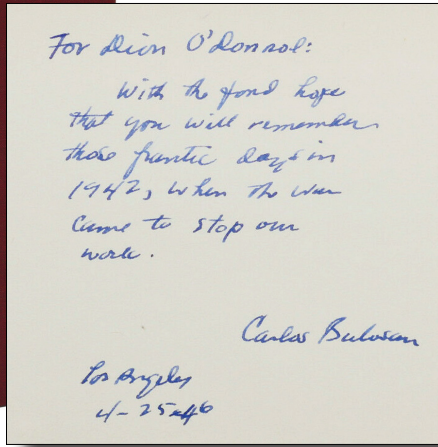 For Dion O'Donnol:
With the fond hope
that you will remember
those frantic days in
1942, when the war
came to stop our
work.
Carlos Bulosan
Los Angeles
4-25-46